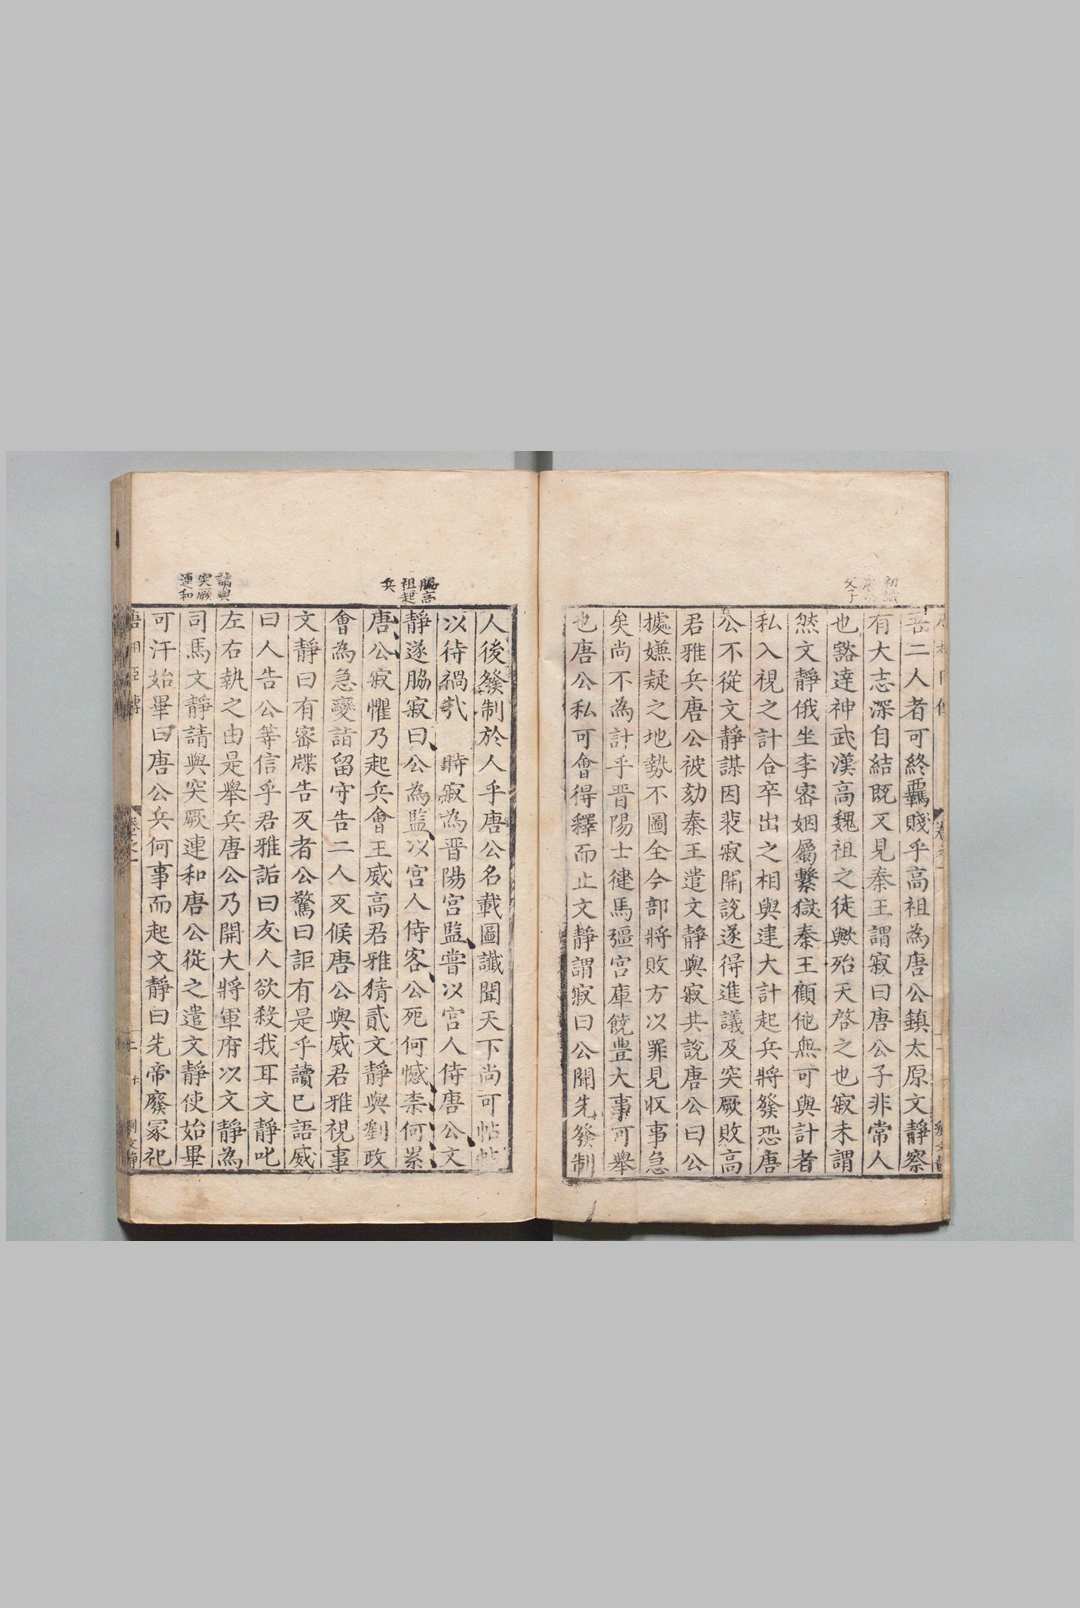 吾二人者可終羈賤乎高祖為唐公鎮太原文靜察
有大志深自結既又見秦王謂寂曰唐公子非常人
也豁達神武漢高魏祖之徒歟殆天啓之也寂未謂
然文靜俄坐李密姻屬繫獄秦王顧他無可與計者
私入視之計合卒出之相與建大計起兵將發恐唐
公不從文靜謀因裴寂開說遂得進議及突厥敗高
君雅兵唐公被劾秦王遣文靜與寂共說唐公曰公
據嫌疑之地勢不圖全今部將敗方以罪見収事急
矣尚不為計乎晋陽士健馬彊宮庫饒豊大事可舉
也唐公私可會得釋而止文靜謂寂曰公聞先發制
人後發制於人乎唐公名載圖讖聞天下尚可帖帖
以待禍㢤 時寂為晋陽宮監嘗以宮人侍唐公文
靜遂脇寂曰公為監以宮人侍客公死何憾柰何累
唐公寂懼乃起兵會王威高君雅猜貳文靜與劉政
會為急變詣留守告二人反候唐公與威君雅視事
文靜曰有密牒告反者公驚曰詎有是乎讀已語威
曰人告公等信乎君雅詬曰反人欲殺我耳文靜叱
左右執之由是舉兵唐公乃開大將軍府以文靜為
司馬文靜請與突厥連和唐公從之遣文靜使始畢
可汗始畢曰唐公兵何事而起文靜曰先帝廢冢祀
脇高
祖起
兵
請與
突厥
連和